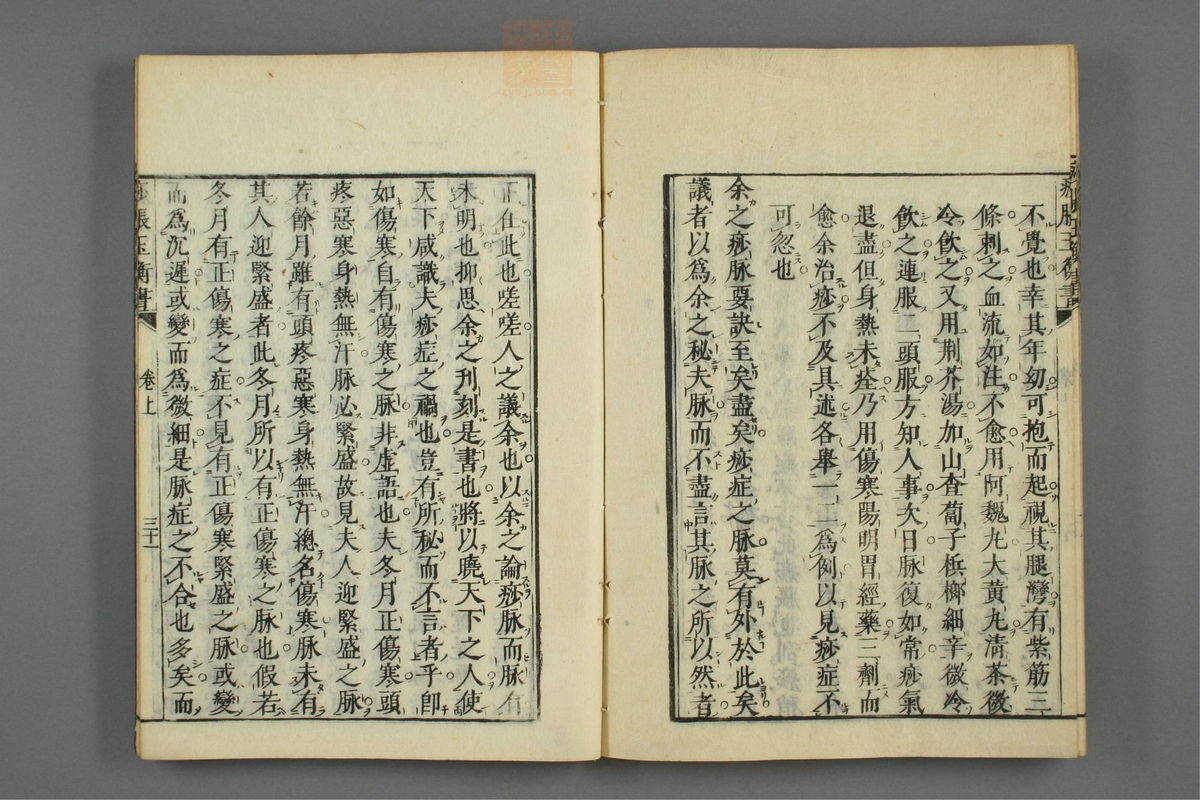 不覺也幸其年幼可抱而起視其腿灣有紫筋三
條刺之血流如注不愈用阿魏丸大黃丸淸茶微
冷飮之又用荆芥湯加山査蔔子梹榔細辛微冷
飮之連服二頭服方知人事次日脉復如常痧氣
退盡但身熱未痊乃用傷寒陽明胃經藥二劑而
愈余治痧不及具述各舉一二爲例以見痧症不
可忽也
余之痧脉要訣至矣盡矣痧症之脉莫有外於此矣
議者以爲余之秘夫脉而不盡言其脉之所以然者
正在此也嗟嗟人之議余也以余之論痧脉而脉有
未明也抑思余之刋刻是書也將以曉天下之人使
天下咸識夫痧症之禍也豈有所秘而不言者乎卽
如傷寒自有傷寒之脉非虛語也夫冬月正傷寒頭
疼惡寒身熱無汗脉必緊盛故見夫人迎緊盛之脉
若餘月雖有頭疼惡寒身熱無汗總名傷寒脉未有
其人迎緊盛者此冬月所以有正傷寒之脉也假若
冬月有正傷寒之症不見有正傷寒緊盛之脉或變
而爲沉遲或變而爲微細是脉症之不合也多矣而
痧脹玉衡書
卷上
三十一